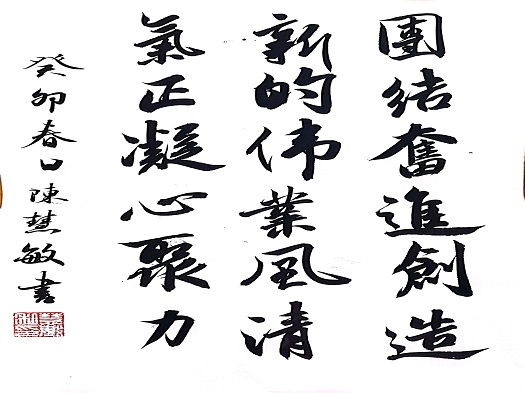 團结奮進創造
新的伟業风清
氣正凝心聚力
癸卯春日陳慧敏書